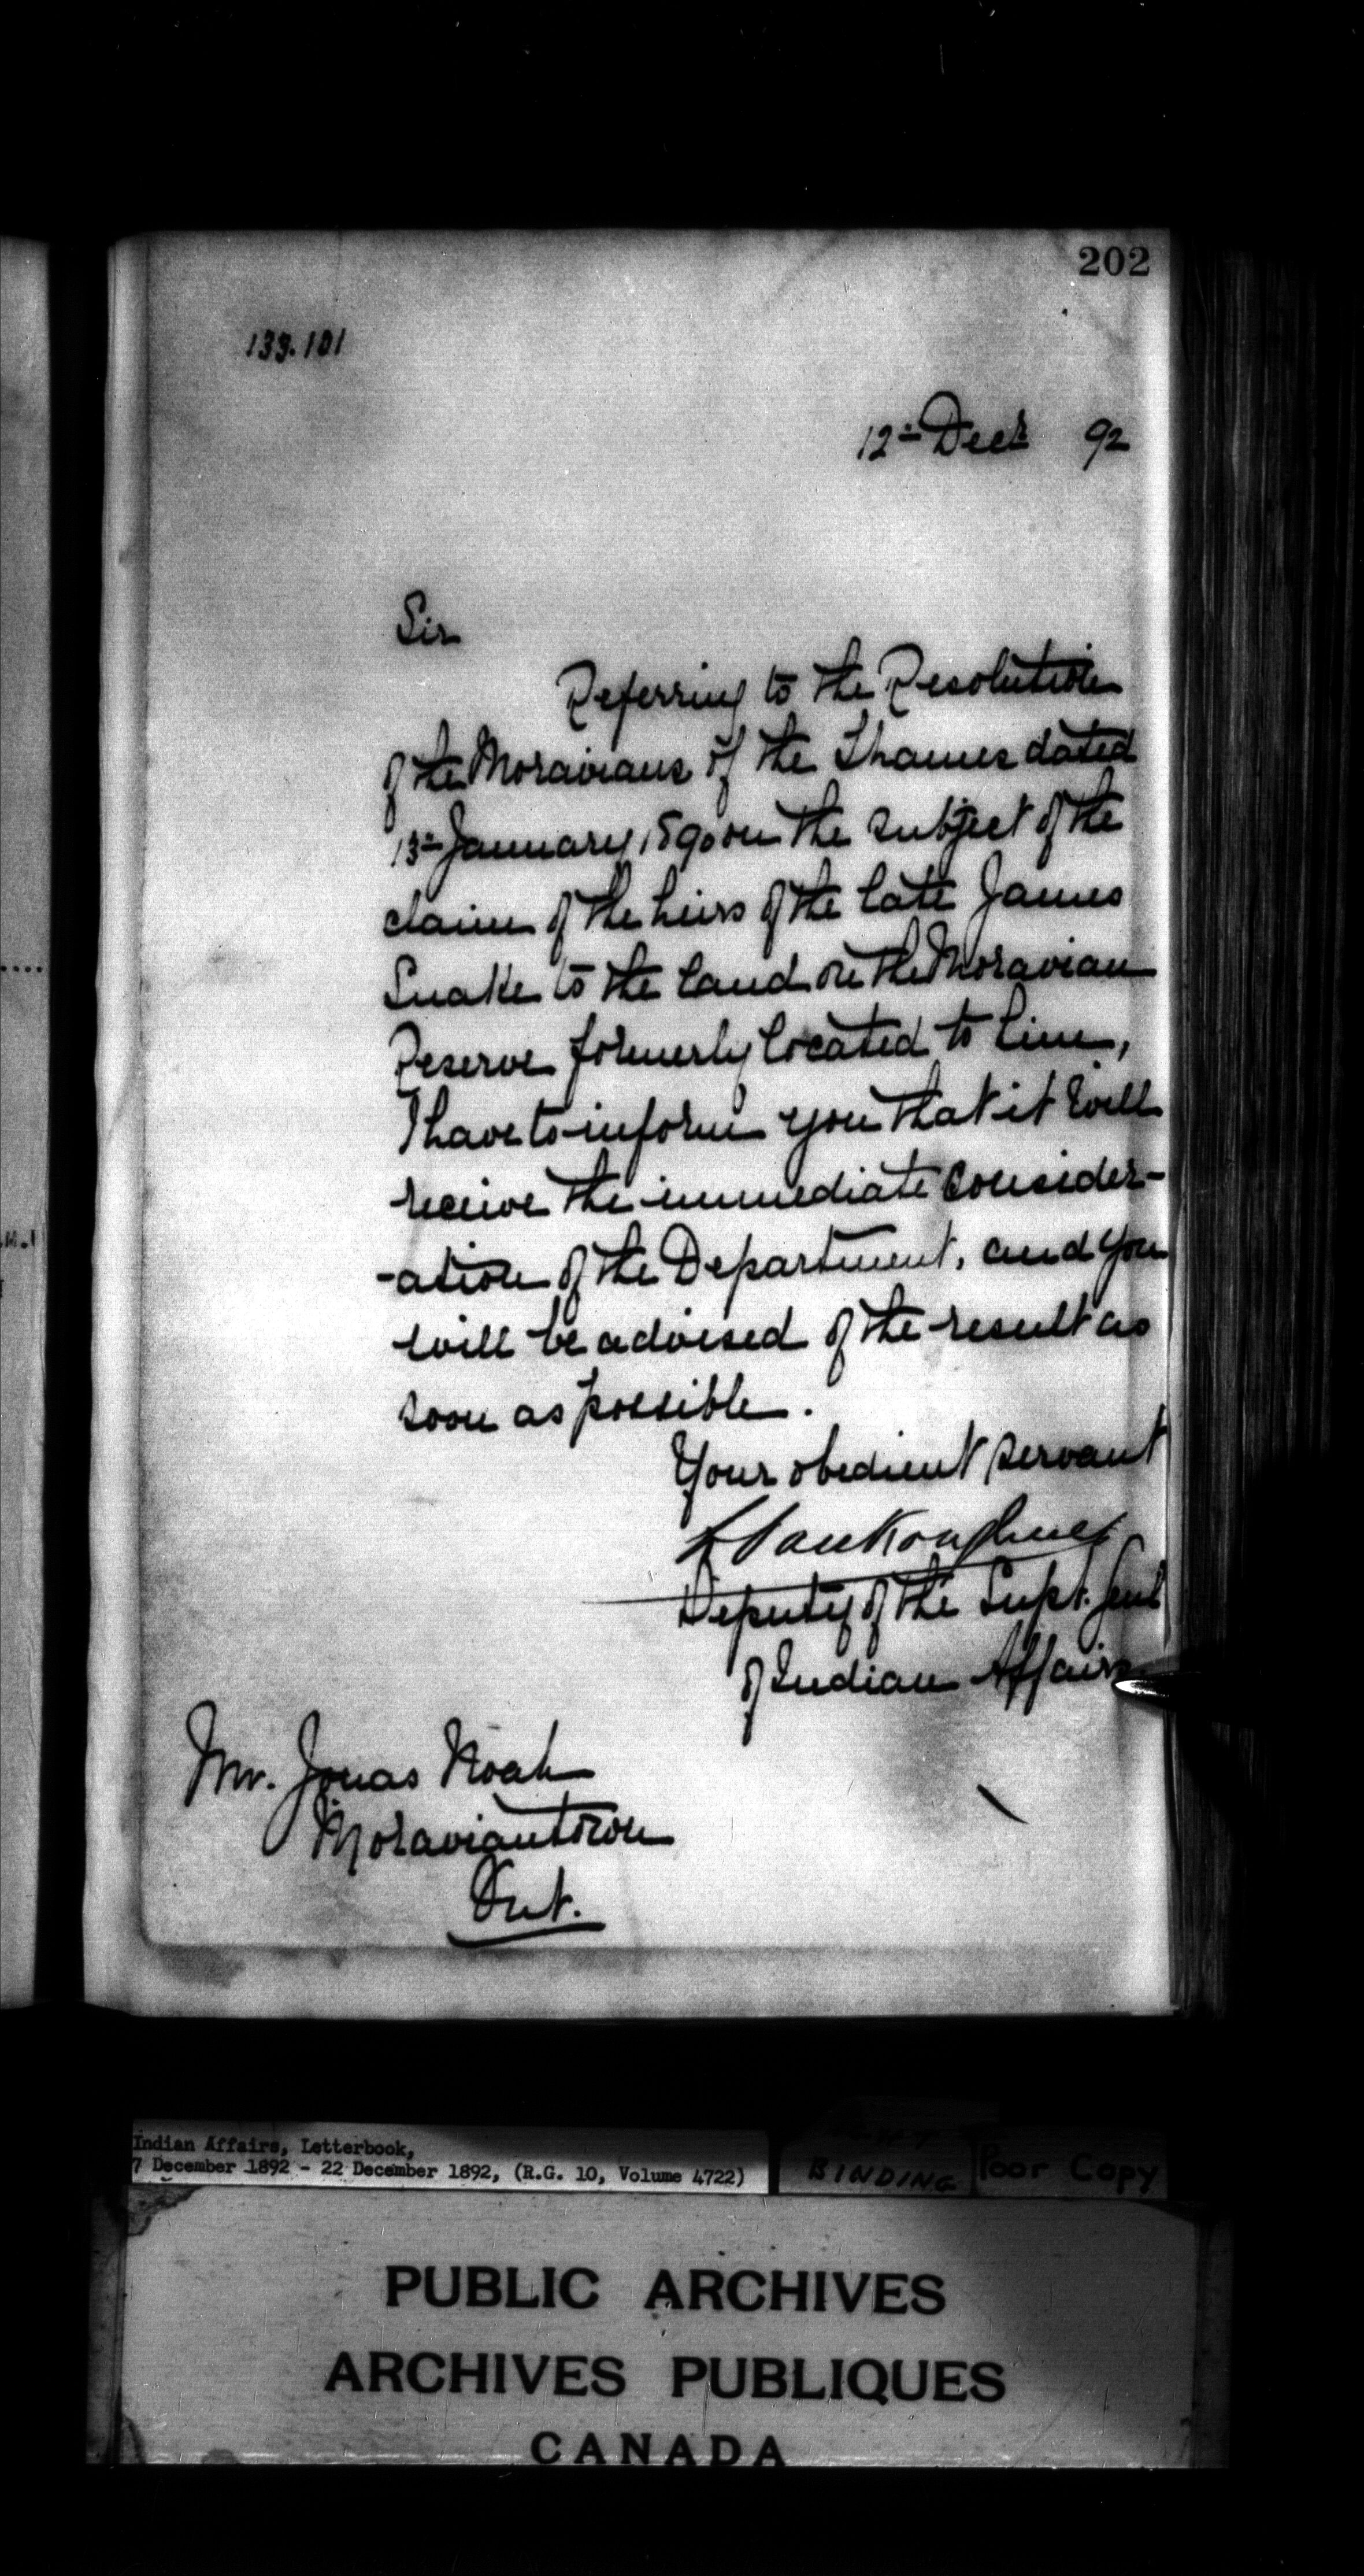 202
133.101
12th Decr 92
Sir
Referring to the Resolution
of the Moravians of the Thames dated
13th January 1890 on the subject of the
claim of the heirs of the late James
Snake to the land on the Moravian
Reserve formerly located to him,
I have to inform you that it will
receive the immediate consider-
-ation of the Department, and you
will be advised of the result as
soon as possible.
Your obedient servant
L Vankoughnet
Deputy of the Supt. Genl
of Indian Affairs
Mr. Jonas Noah
Moraviantown
Ont.
Indian Affairs, Letterbook,
7 December 1892 - 22 December 1892, (R.G. 10, Volume 4722)
BINDING
Poor Copy
PUBLIC ARCHIVES
ARCHIVES PUBLIQUES
CANADA